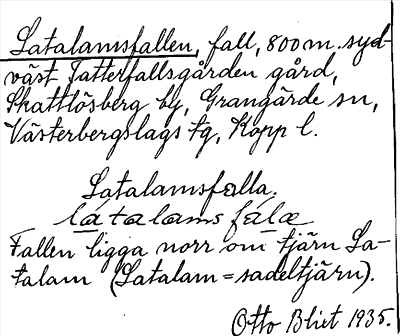 Latalamsfallen, fall, 800 m. syd-
väst Tatterfallsgården gård,
Skattlösberg by, Grangärde sn,
Västerbergslags tg, Kopp l.
Latalamsfalla.
làtalamsfálæ
Fallen ligga norr om tjärn La-
talam (Latalam = sadeltjärn).
Otto Blixt 1935.